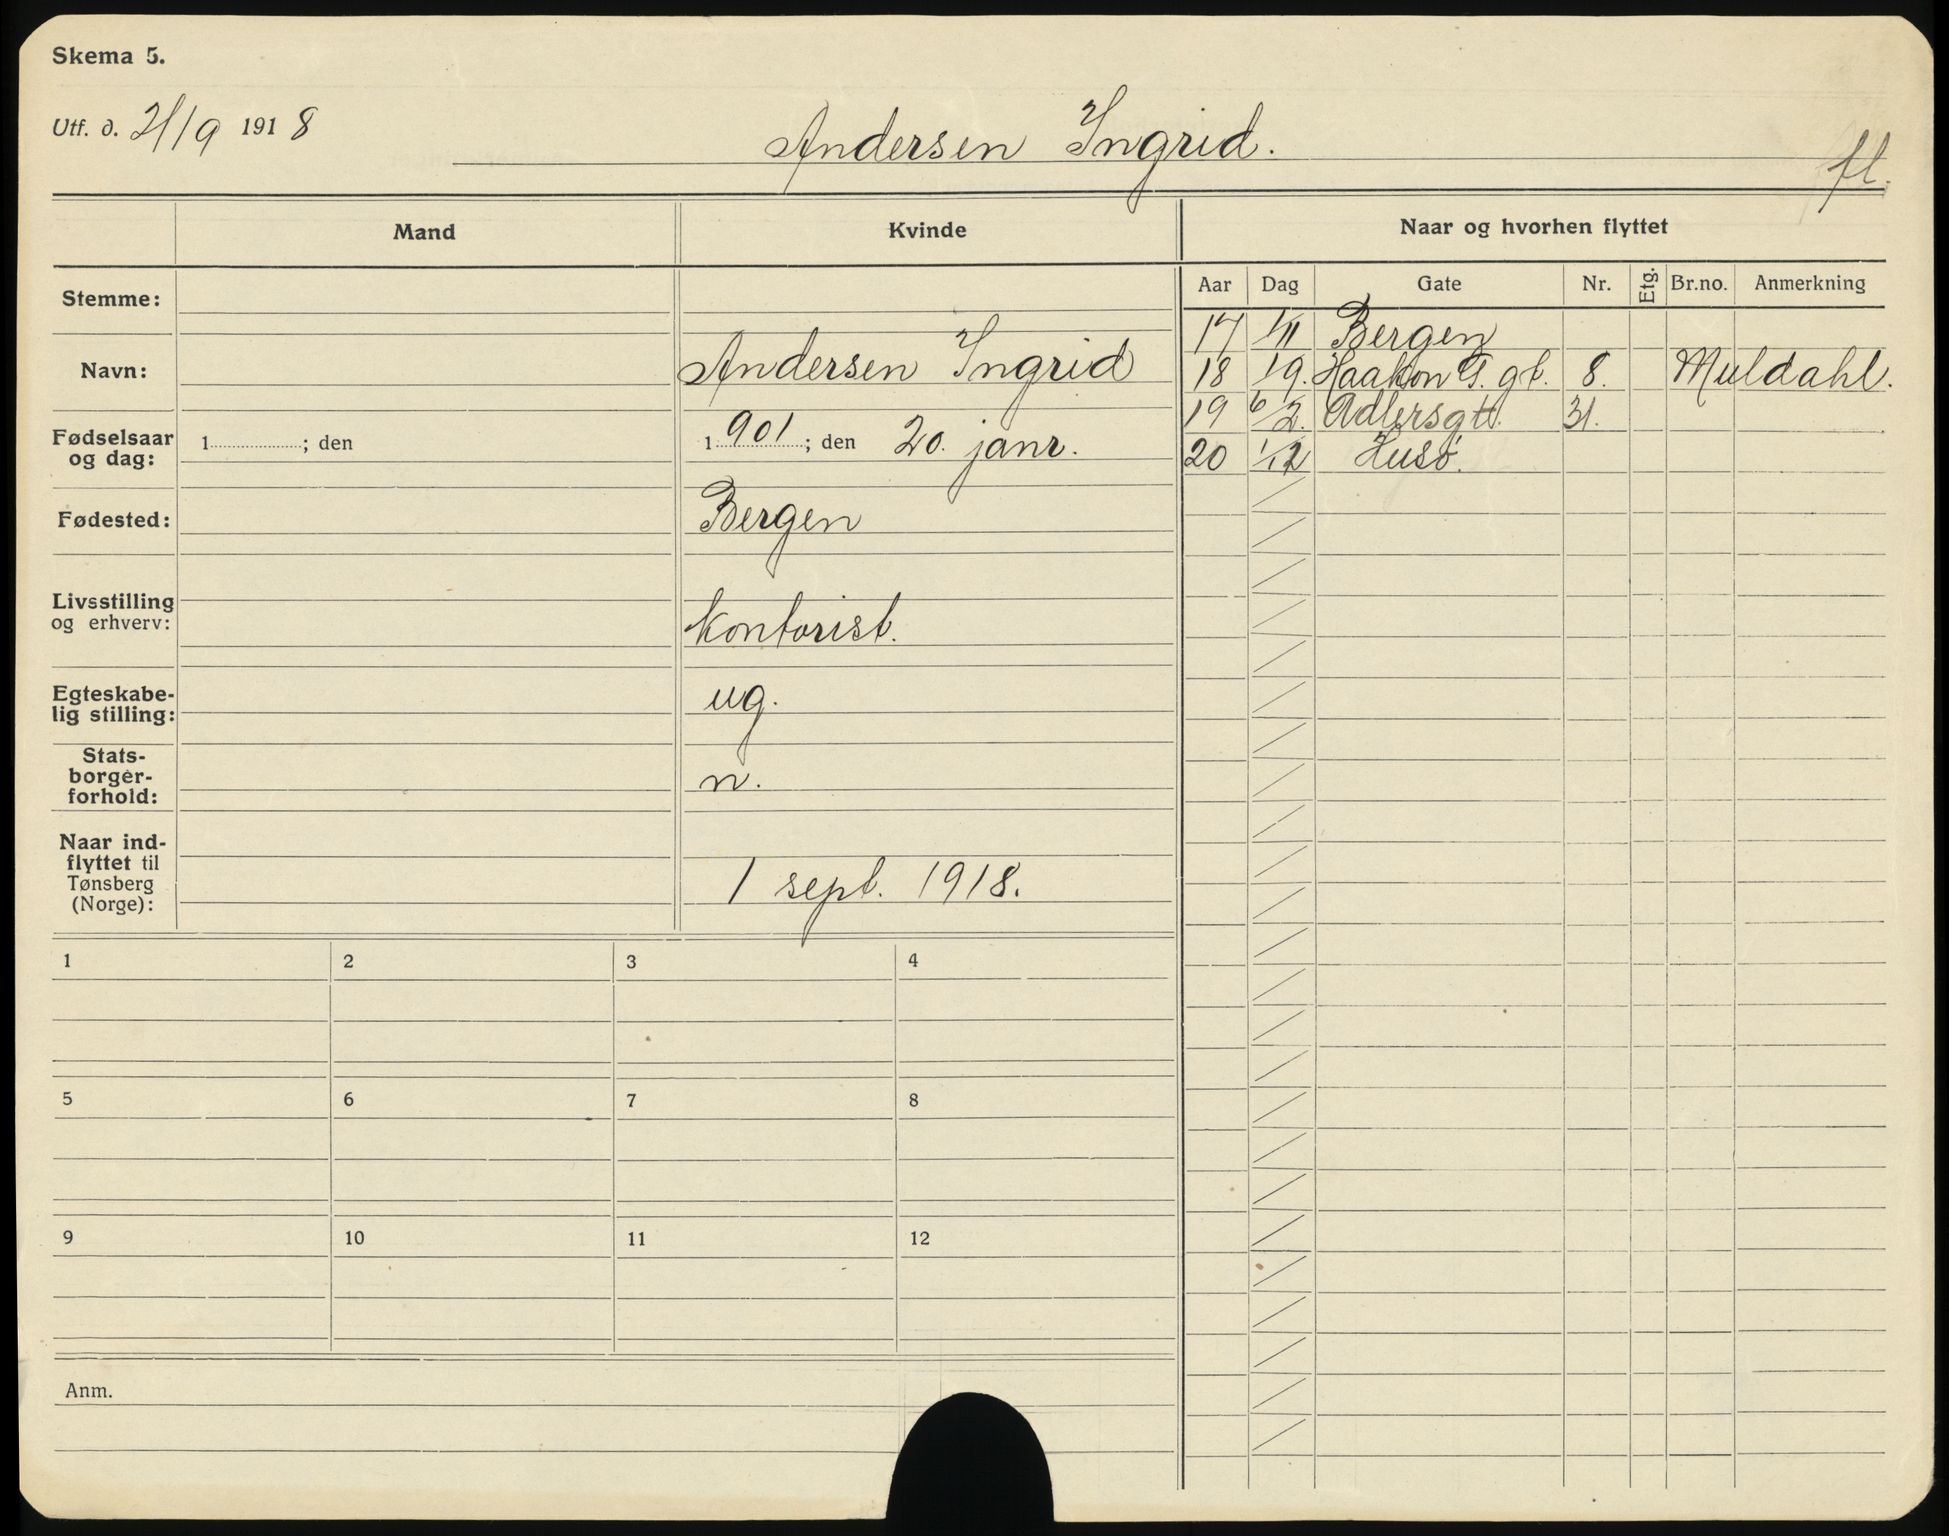 Skema 5.
Utf. d. 21/9 1918
Andersen Ingrid.
fl.
Mand
Kvinde
Naar og hvorhen flyttet
Aar Dag Gate Nr. Etg. Br.no. Anmerkning
17 1/11 Bergen
18 1/9. Haakon V. gt. 8. Muldahl.
19 6/2. Adlersgt. 31.
20 1/12 Husø.
Stemme:
Navn: Andersen Ingrid
Fødselsaar og dag: 1 ; den 1901 ; den 20. janr.
Fødested: Bergen
Livsstilling og erhverv: kontorist.
Egteskabe-
lig stilling: ug.
Stats-
borger-
forhold: n.
Naar ind-
flyttet til
Tønsberg
(Norge): 1 sept. 1918.
1 2 3 4
5 6 7 8
9 10 11 12
Anm.